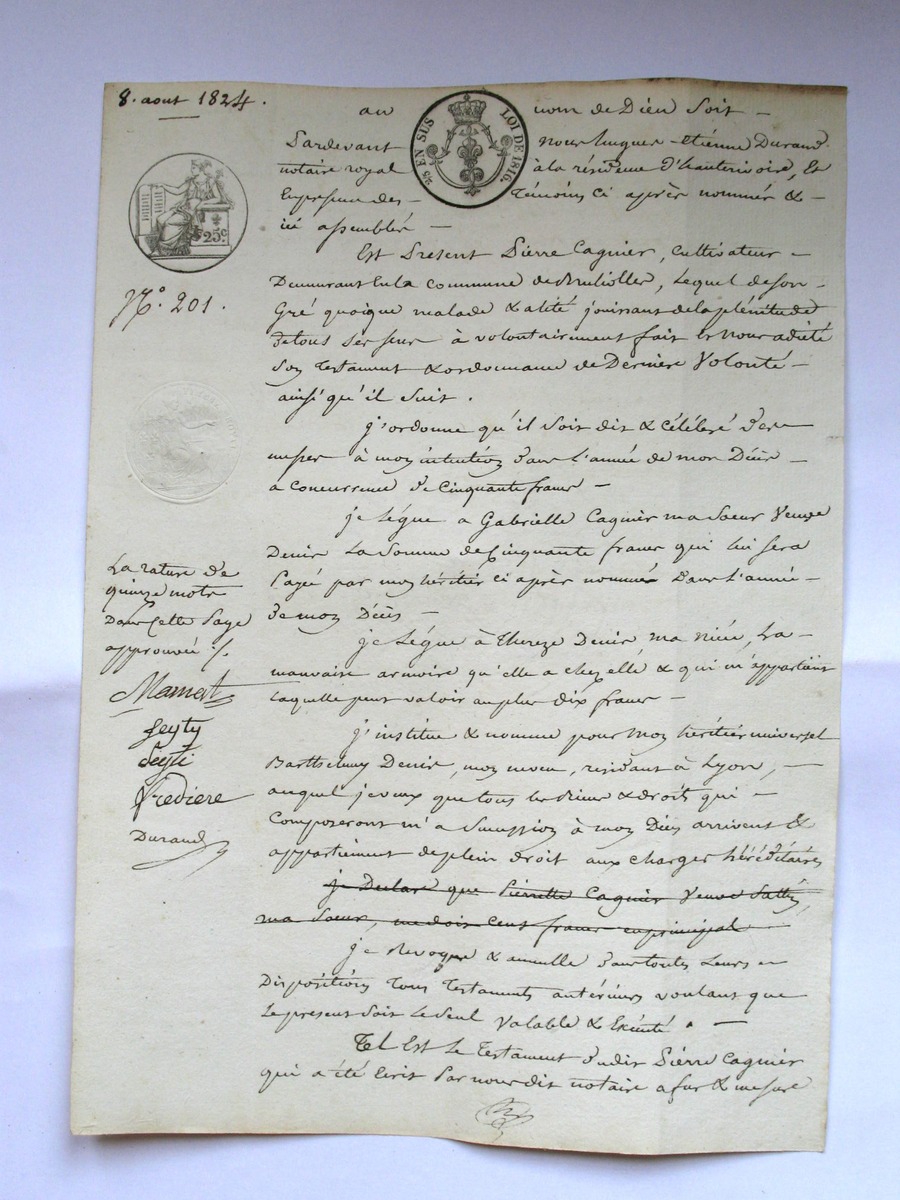 8. aout 1824.
au nom de Dieu Soit –
25 EN SUS LOI DE 1816.
Pardevant nous hugues-etienne Durand
notaire royal à la résidence d'hauterivoire, Et
En présence des – témoins ci après nommés & –
ici assemblés –
25c.
Est Présent Pierre Cagnier, cultivateur –
Demeurant en la commune de, Lequel de son –
N.º 201.
Gré quoique malade & alité jouissant de la plénitude
de tous ses sens à volontairement fait & nous a dicté
Son testament & ordonnance de Dernière Volonté –
ainsi qu'il Suit.
j'ordonne qu'il soit dit & célébré des –
messes à mon intention dans l'année de mon Décès –
a concurrence de Cinquante francs –
je Légue a Gabrielle Cagnier ma Soeur Veuve
Denis La Somme de Cinquante francs qui lui sera
Payé par mon héritier ci après nommé Dans L'année –
de mon Décès –
La rature de
quinze mots
Dans Cette Page
approuvée ./.
Mamert
Seyty
Seyti
fredière
Durand
je Légue à Thereze Denis, ma nièce, La –
mauvaise armoire qu'elle a chez elle & qui m'appartient
Laquelle peut valoir au plus dix francs –
j'institue & nomme pour mon héritier universel
Barthelemy Denis, mon neveu, résidant à Lyon, –
auquel je veux que tous les biens & droits qui –
Composeront m'a Succession à mon Décès arrivent &
appartiennent de plein droit aux charges héréditaires
je Declare que Pierrette Cagnier Veuve
ma Soeur, me doit Cent francs en principal –
je Revoque & annulle dans toutes Leurs –
Dispositions Tous Testaments antérieurs voulant que
Le present Soit Le Seul Valable & Exécuté. –
Tel Est Le Testament dudit Pierre Cagnier
qui a été Ecrit Par nous dit notaire a fur & mesure